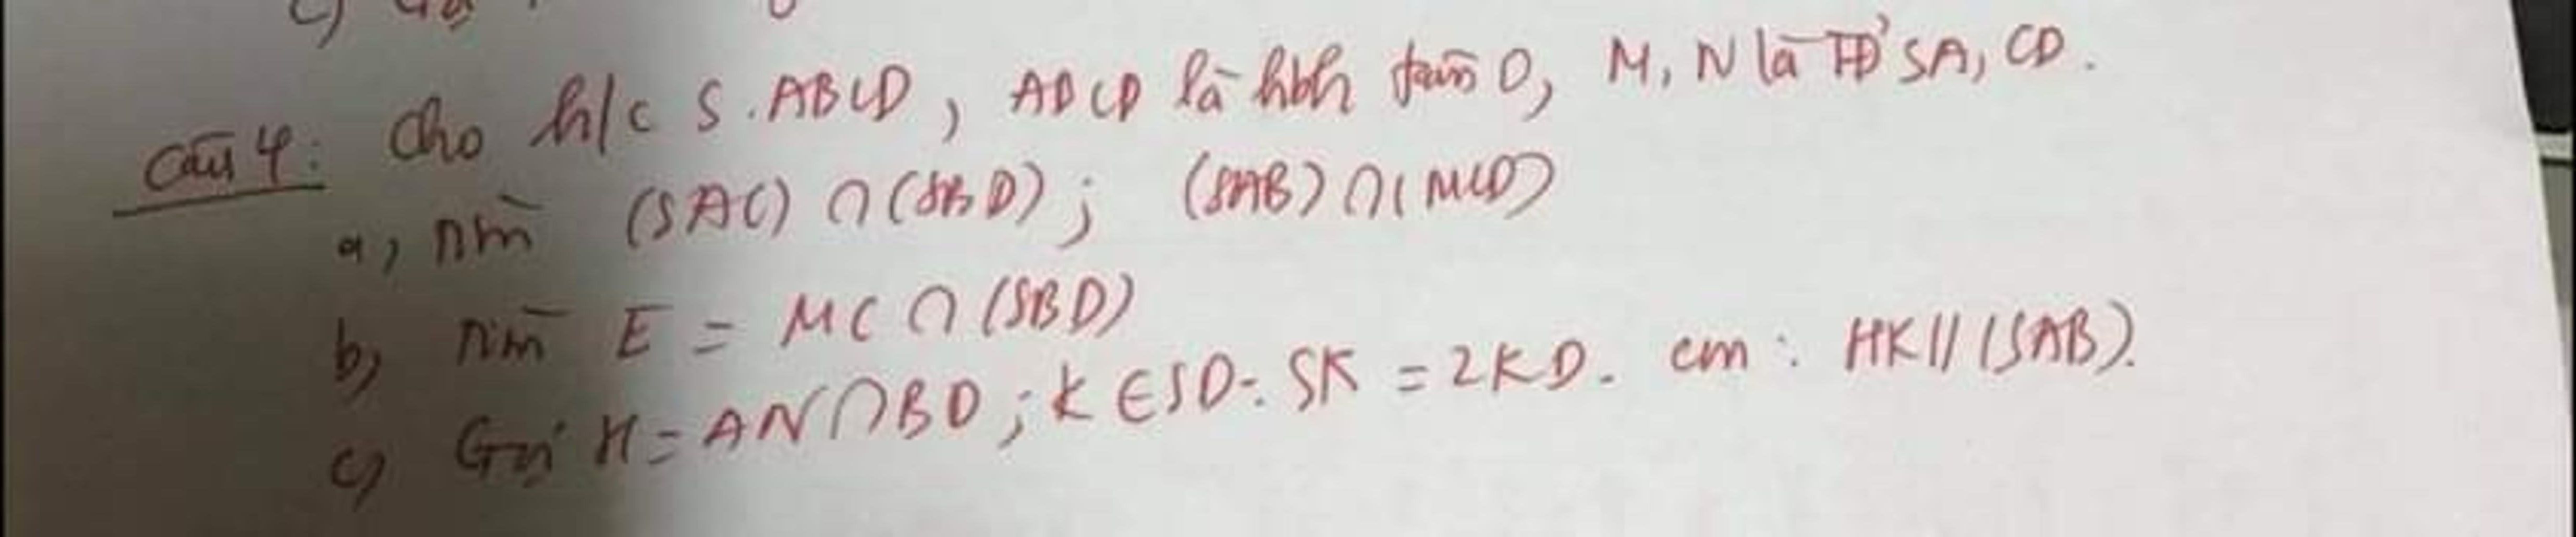 Câu 4: Cho h/c S.ABCD, ABCD là hbh tâm O, M, N là TĐ SA, CD.
a, Tìm (SAC) ∩ (SBD); (SAB) ∩ (MCD)
b, Tìm E = MC ∩ (SBD)
c, Gọi H = AN ∩ BD; K ∈ SD: SK = 2KD. cm: HK // (SAB).